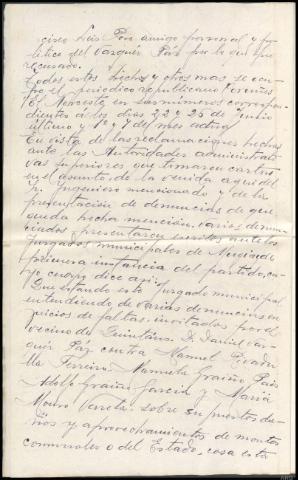 cisco Luis Pon amigo personal y po-
litico del Vazquez Paz por lo que fue
recusado.
Todos estos hechos y otros mas se con-
fro el periodico republicano Orensano
"El Noroeste en sus numeros correspon-
dientes a los dias 22 y 25 de Junio
último y 1º y 7 del mes actual
En vista de las reclamaciones hechas
ante las Autoridades administrati-
vas superiores que tomaron cartas
en el asunto de la venida aqui del
Sr. Ingeniero mencionado y de la
presentación de denuncias de que
queda hecha mención, varios denun-
ciados presentaron escritos ante los
juzgados municipales de
primera instancia del partido, cu-
yo cuerpo dice asi:
Que estando este Juzgado municipal
entendiendo de varias denuncias en
juicios de faltas, invitados por el
vecino de Quintans D. Daniel Vaz-
quez Páz contra Manuel
Ferreiro, Manuela Graiño Pais
Adolfo Graiño Garcia y Maria
Mouro Varela, sobre supuestos da-
ños y aprovechamientos de montes
comunales o del Estado, cosa esta